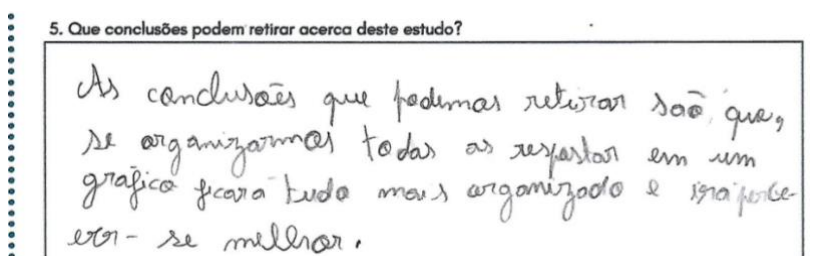 5. Que conclusões podem retirar acerca deste estudo?
As conclusoẽs que podemos retirar saõ que,
se organizarmos todas as respostas em um
gráfico ficará tudo mais organizado e irá perce-
err- se melhor.